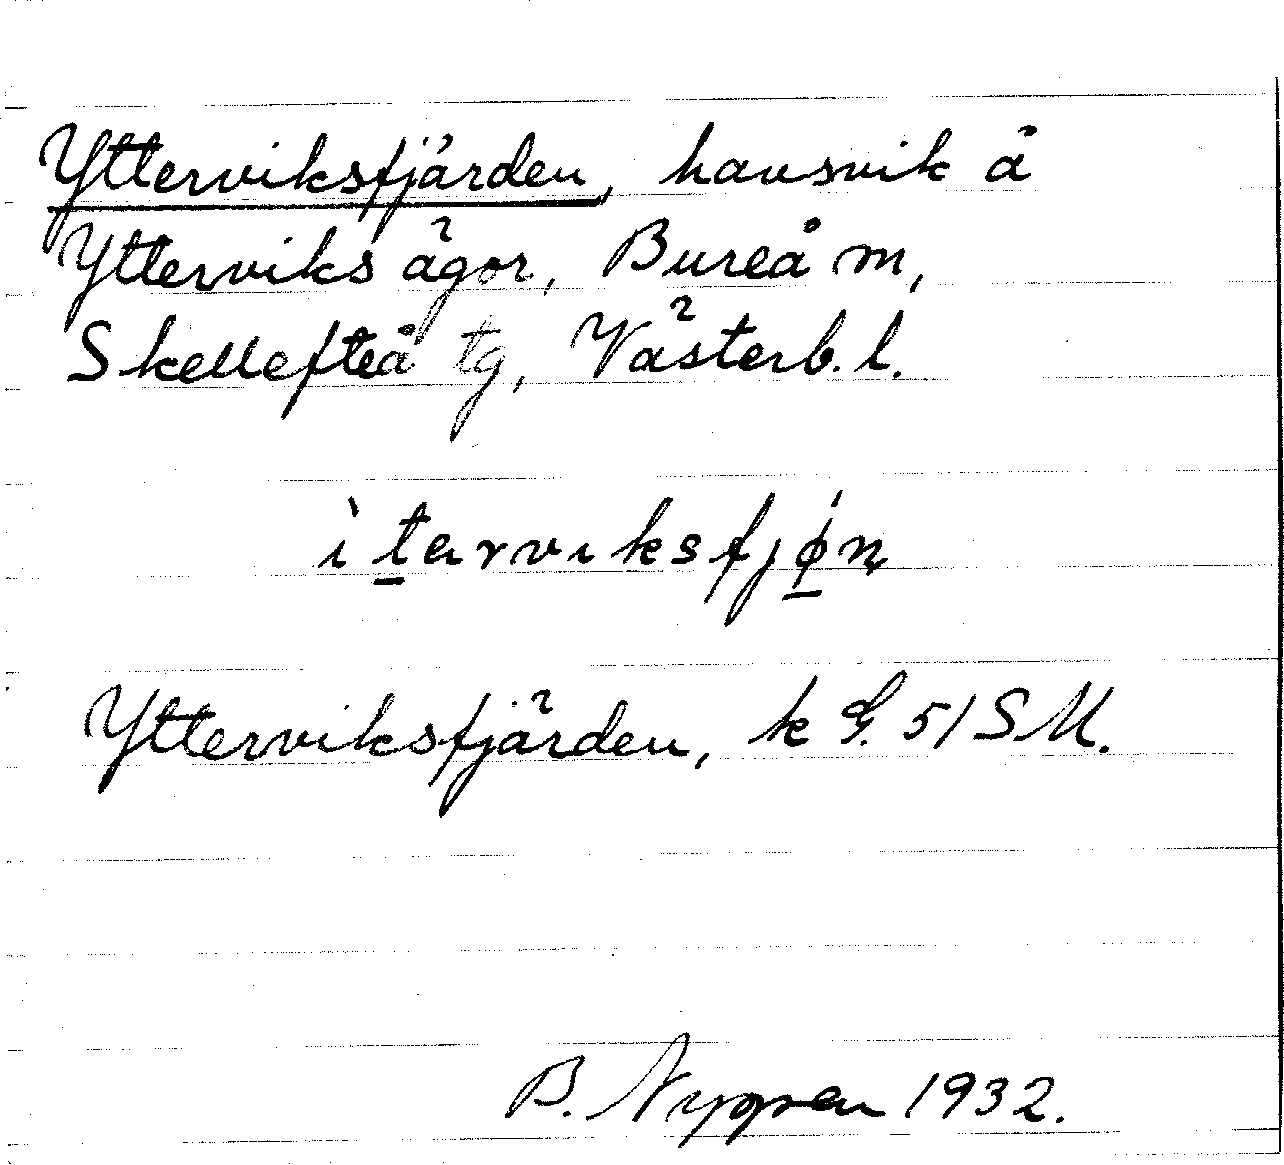 Ytterviksfjärden, havsvik å
Ytterviks ägor, Bureå m,
Skellefteå tg, Västerb. l.
ìt̲ərviksfjǿ̲n
Ytterviksfjärden, k G. 51 SM.
B. 1932.